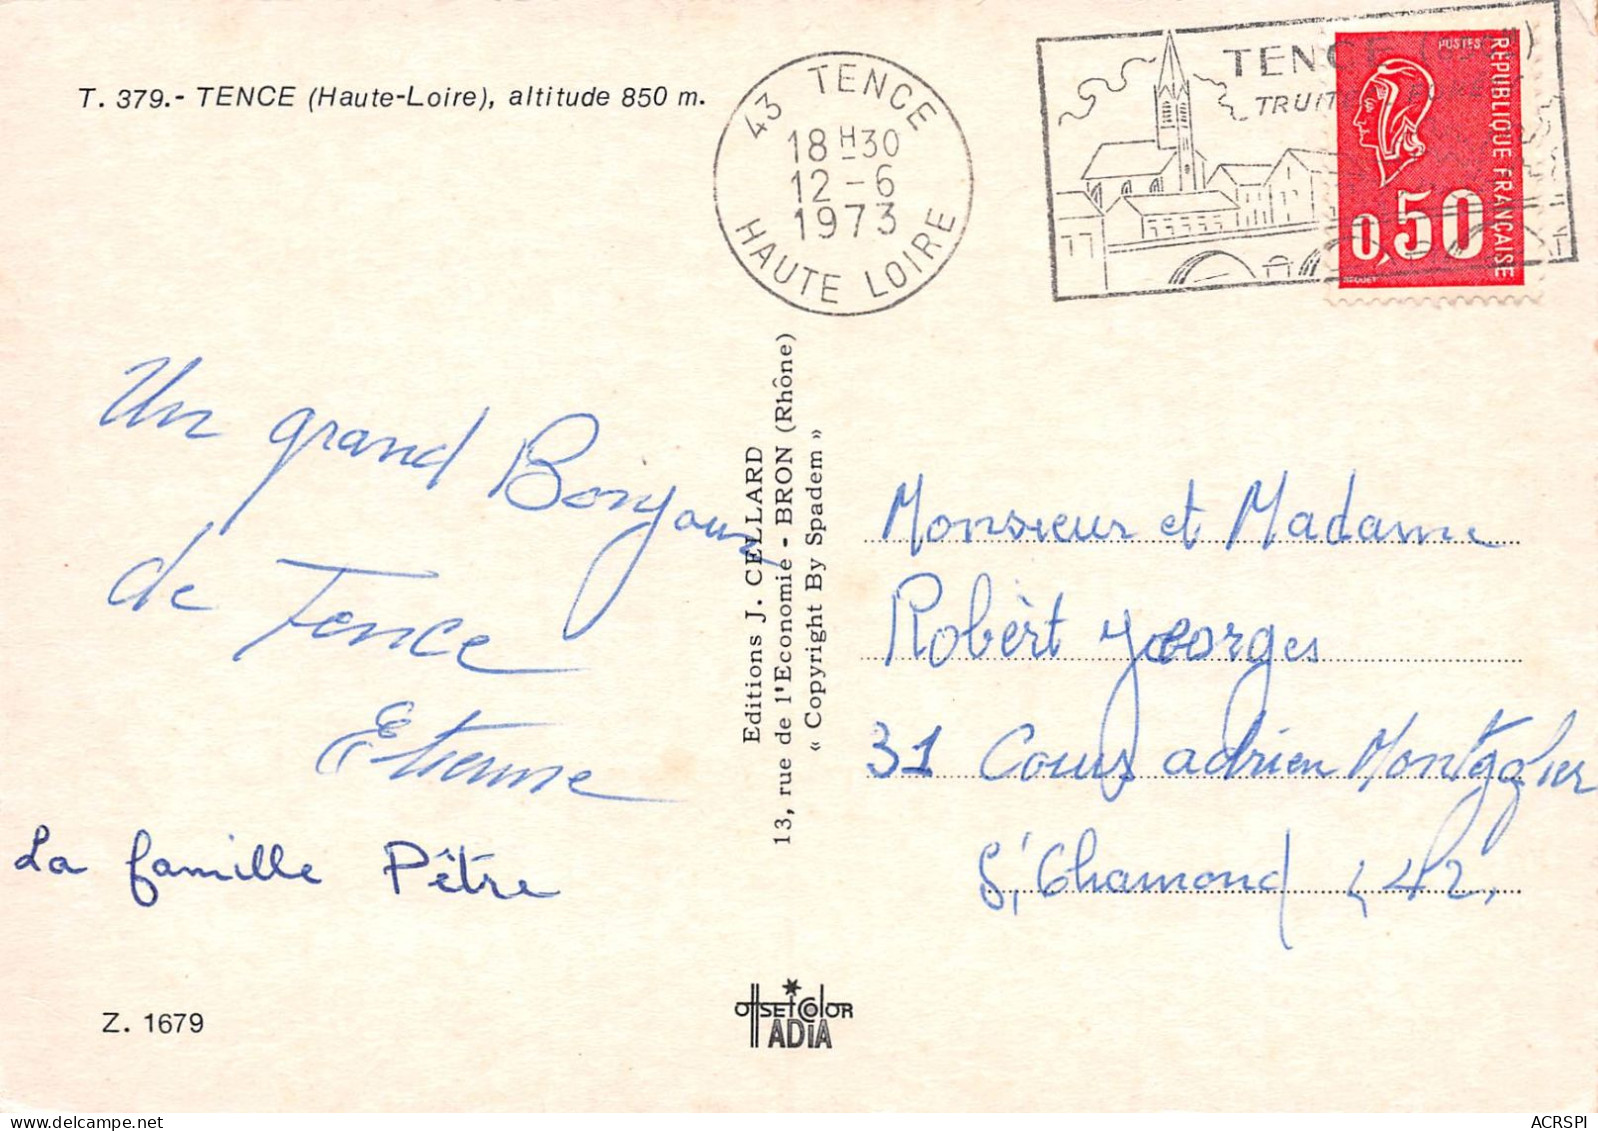 T. 379.- TENCE (Haute-Loire), altitude 850 m.
43 TENCE
18 H 30
12 - 6
1973
HAUTE LOIRE
TENCE
POSTES
REPUBLIQUE FRANÇAISE
0,50
Un grand Bonjour
de Tence
Etienne
La famille Pêtre
Editions J. CELLARD
13, rue de l'Economie - BRON (Rhône)
« Copyright By Spadem »
Monsieur et Madame
Robèrt Georges
31 Cours adrien
St Chamond 42.
Z. 1679
OffSEt COlOR
ADiA
ACRSPI